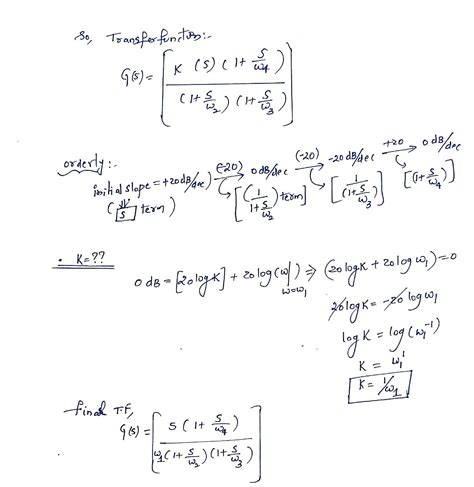 So, Transferfunction:-
G(s) = [ K (S) (1 + S/ω4) / (1 + S/ω2) (1 + S/ω3) ]
orderly :-
initial slope = +20dB/dec) (-20) → 0 dB/dec (-20) → -20dB/dec +20 → 0 dB/dec
( S term ) [ (1/(1+S/ω2)) term ] [ 1/(1+S/ω3) ] [ (1+S/ω4) ]
• K = ??
0 dB = [20logK] + 20log(ω)| ω=ω1 ⇒ (20logK + 20logω1) = 0
20logK = -20logω1
logK = log(ω1⁻¹)
K = ω1⁻¹
K = 1/ω1
final T.F,
G(s) = [ S (1 + S/ω4) / ω1(1 + S/ω2)(1 + S/ω3) ]